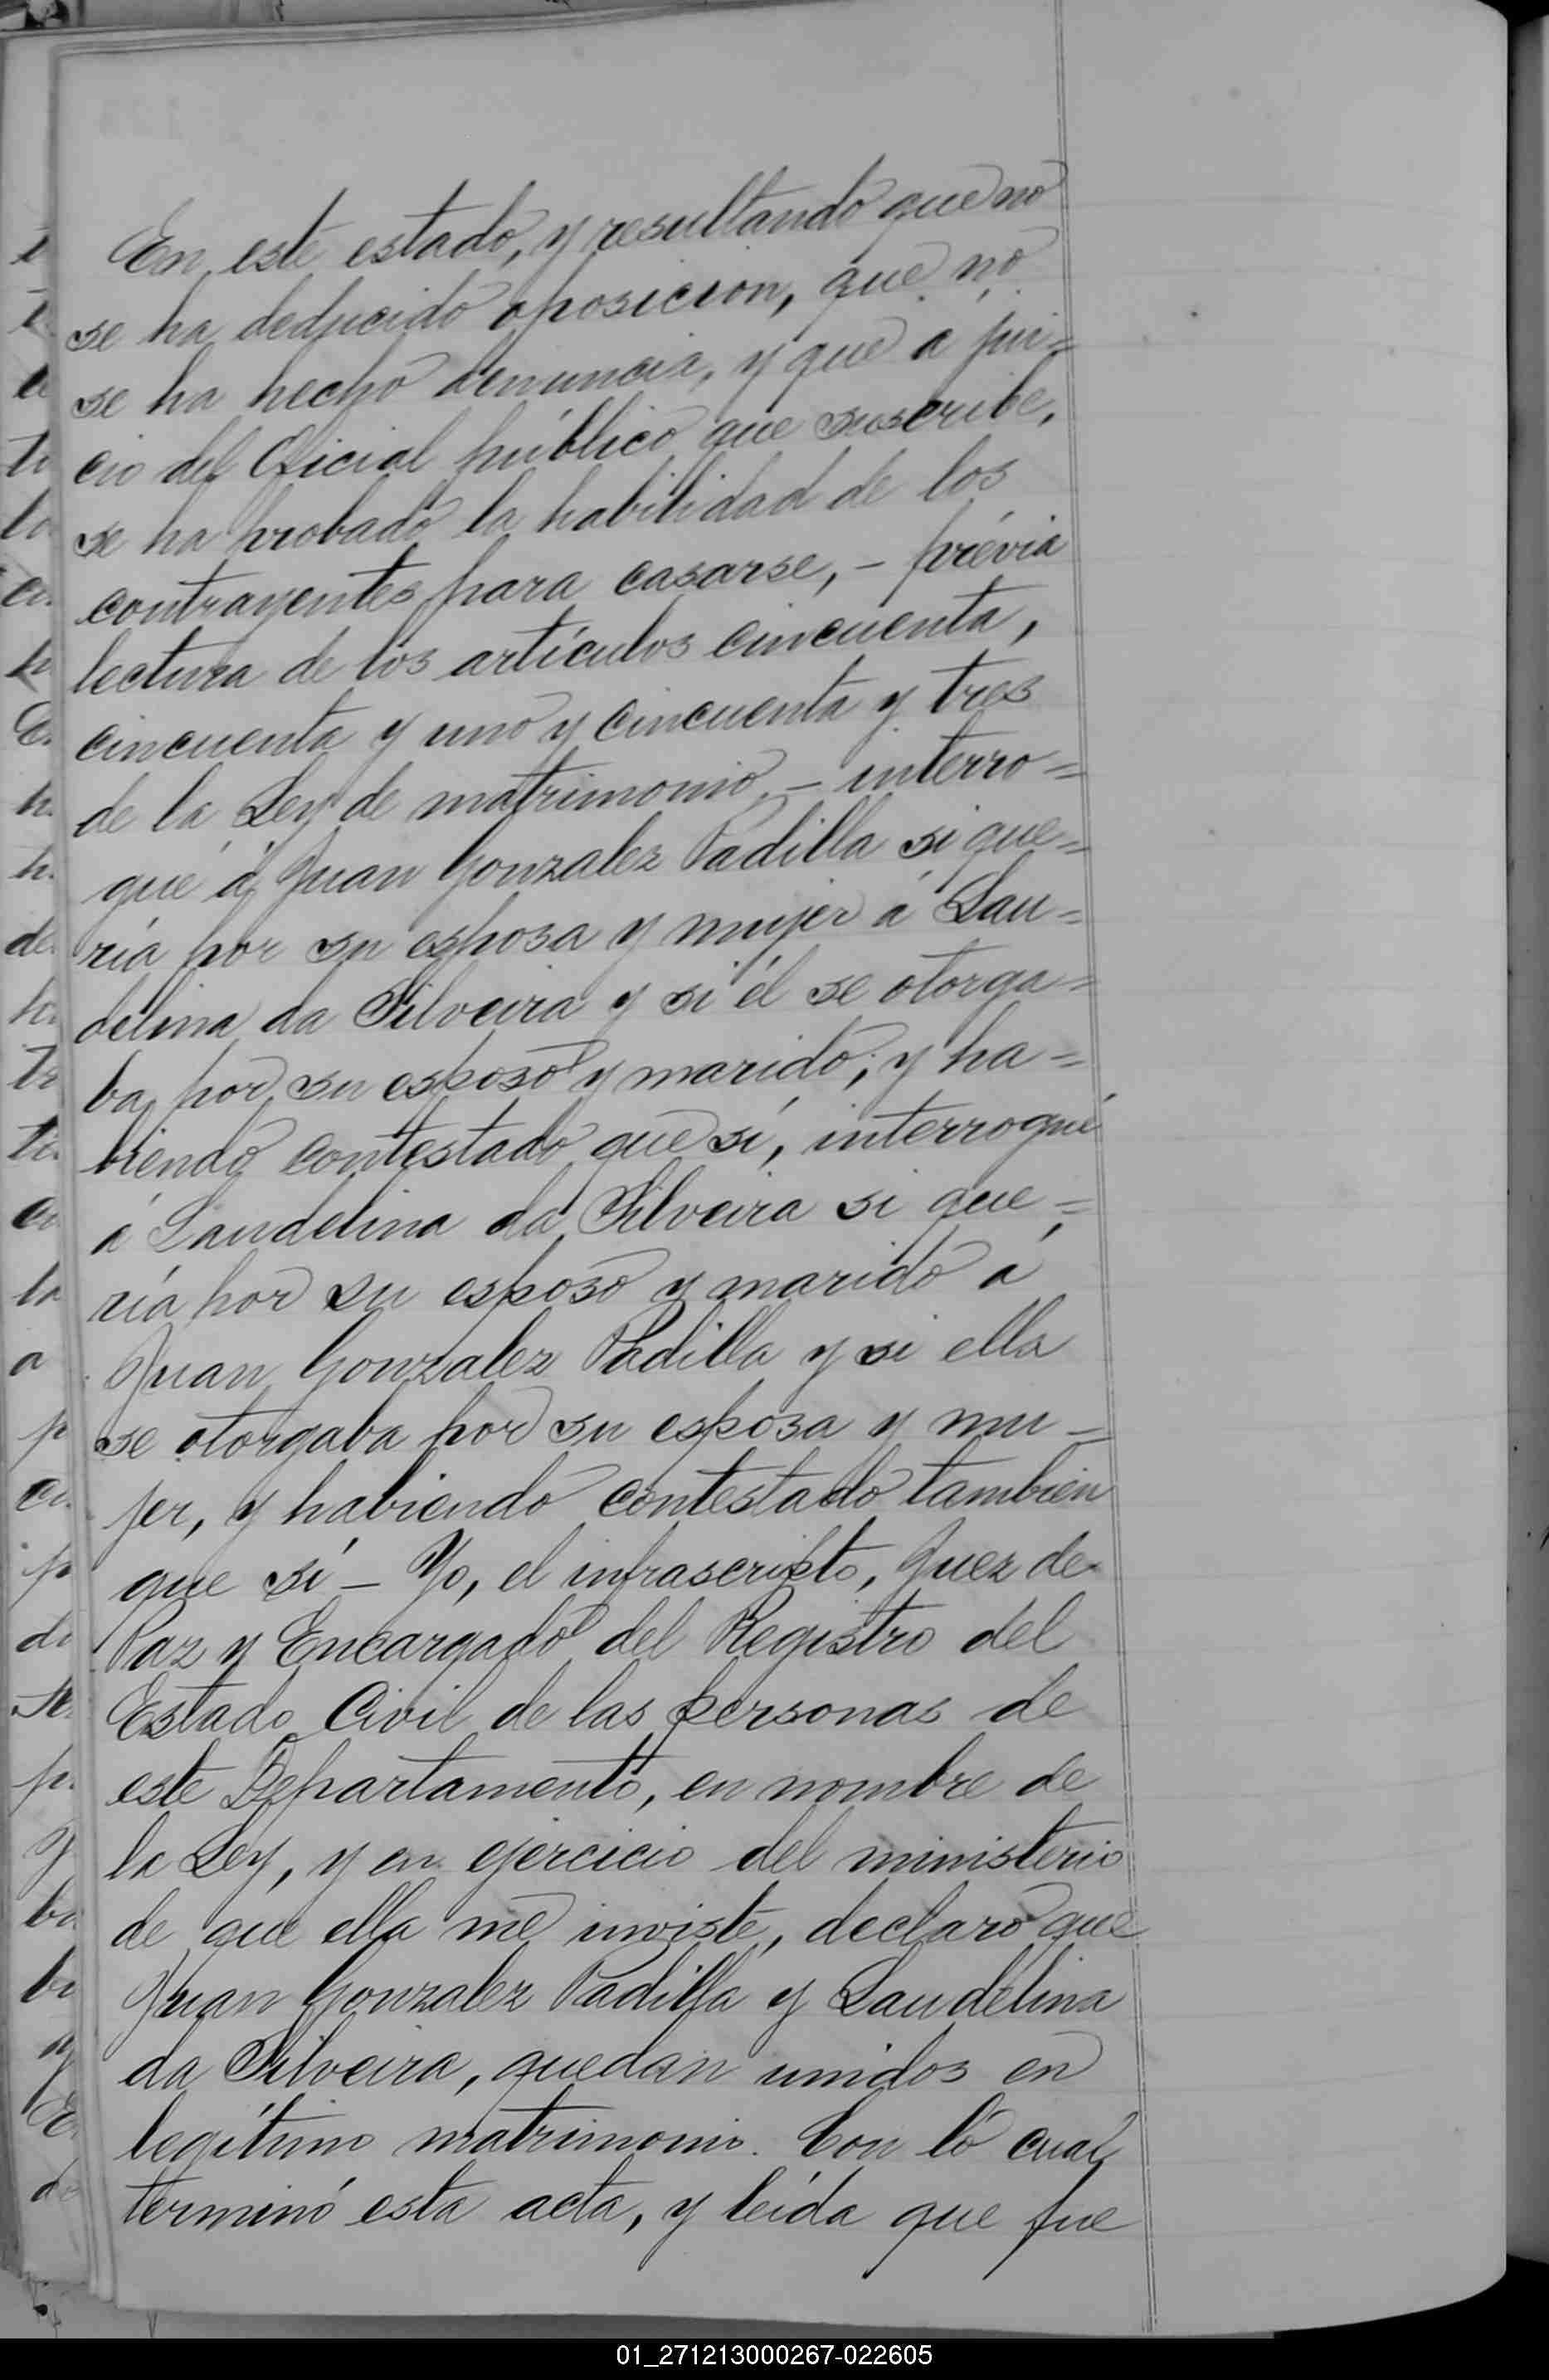 En este estado, y resultando que no
se ha deducido oposicion, que no
se ha hecho denuncia, y que a jui=
cio del Oficial público que suscribe,
se ha probado la habilidad de los
contrayentes para casarse, - prévia
lectura de los artículos cincuenta,
cincuenta y uno y cincuenta y tres
de la Ley de matrimonio, - interro=
gué á Juan Gonzalez Padilla si que=
ría por su esposa y mujer á Lau=
delina da Silveira y si él se otorga=
ba por su esposo y marido; y ha=
biendo contestado que sí, interrogué
á Laudelina da Silveira si que=
ría por su esposo y marido á
Juan Gonzalez Padilla y si ella
se otorgaba por su esposa y mu-
jer, y habiendo contestado tambien
que sí - Yo, el infrascripto, Juez de
Paz y Encargado del Registro del
Estado Civil de las personas de
este Departamento, en nombre de
la Ley, y en ejercicio del ministerio
de que ella me inviste, declaro que
Juan Gonzalez Padilla y Laudelina
da Silveira, quedan unidos en
legítimo matrimonio. Con lo cual
terminó esta acta, y leída que fue
01_271213000267-022605